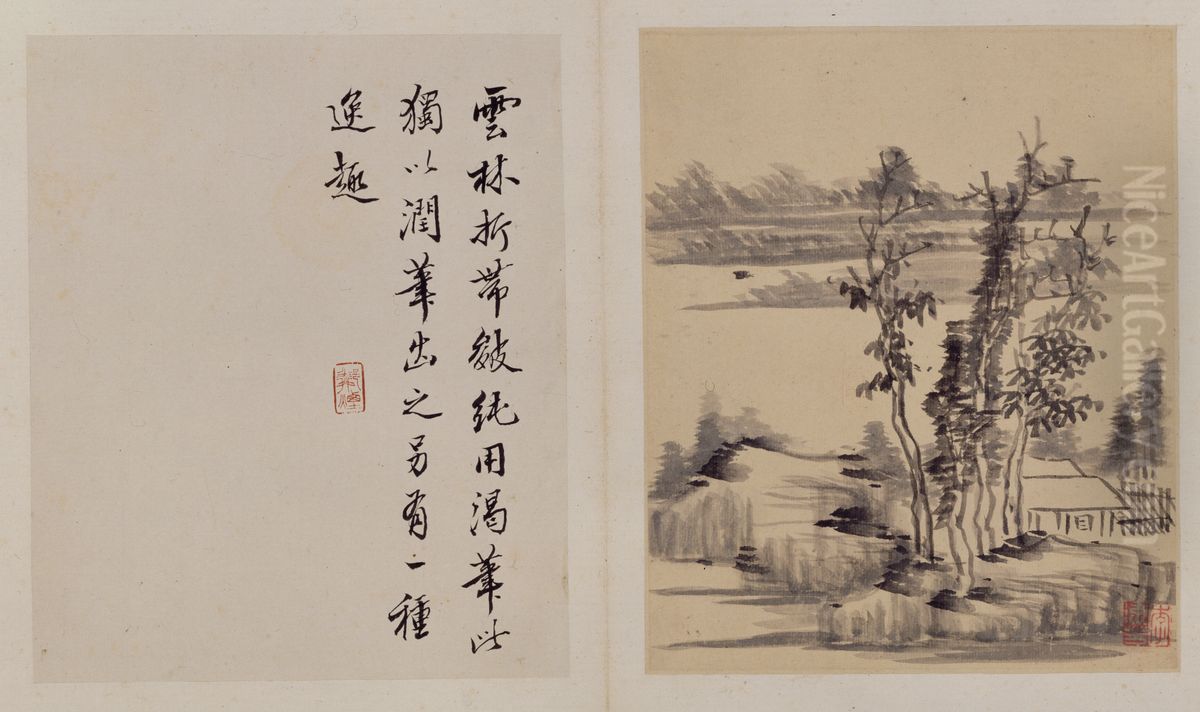 雲林折帶皴純用渴筆此
獨以潤筆出之另有一種
逸趣
NiceArtGallery.com